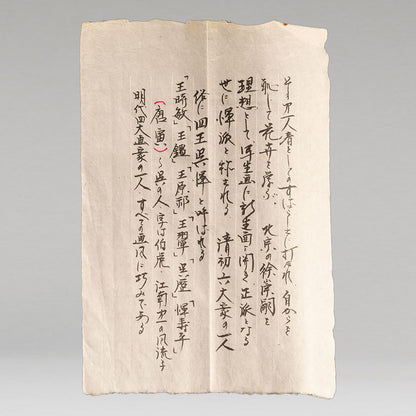 その才一人者としてのすばらしさに打たれ 自からを
恥じて花卉を学ぶ 北宋の徐崇嗣を
理想として写生画に新生面を開き 正派なる
世に惲派と称される 清初六大家の一人
俗に四王呉惲と呼ばれる
「王時敏」「王鑑」「王原祁」「王翬」「呉歴」「惲寿平」
(唐寅)～呉の人 字は伯虎、江南才一の風流子
明代四大画家の一人 すべての画風に巧みである